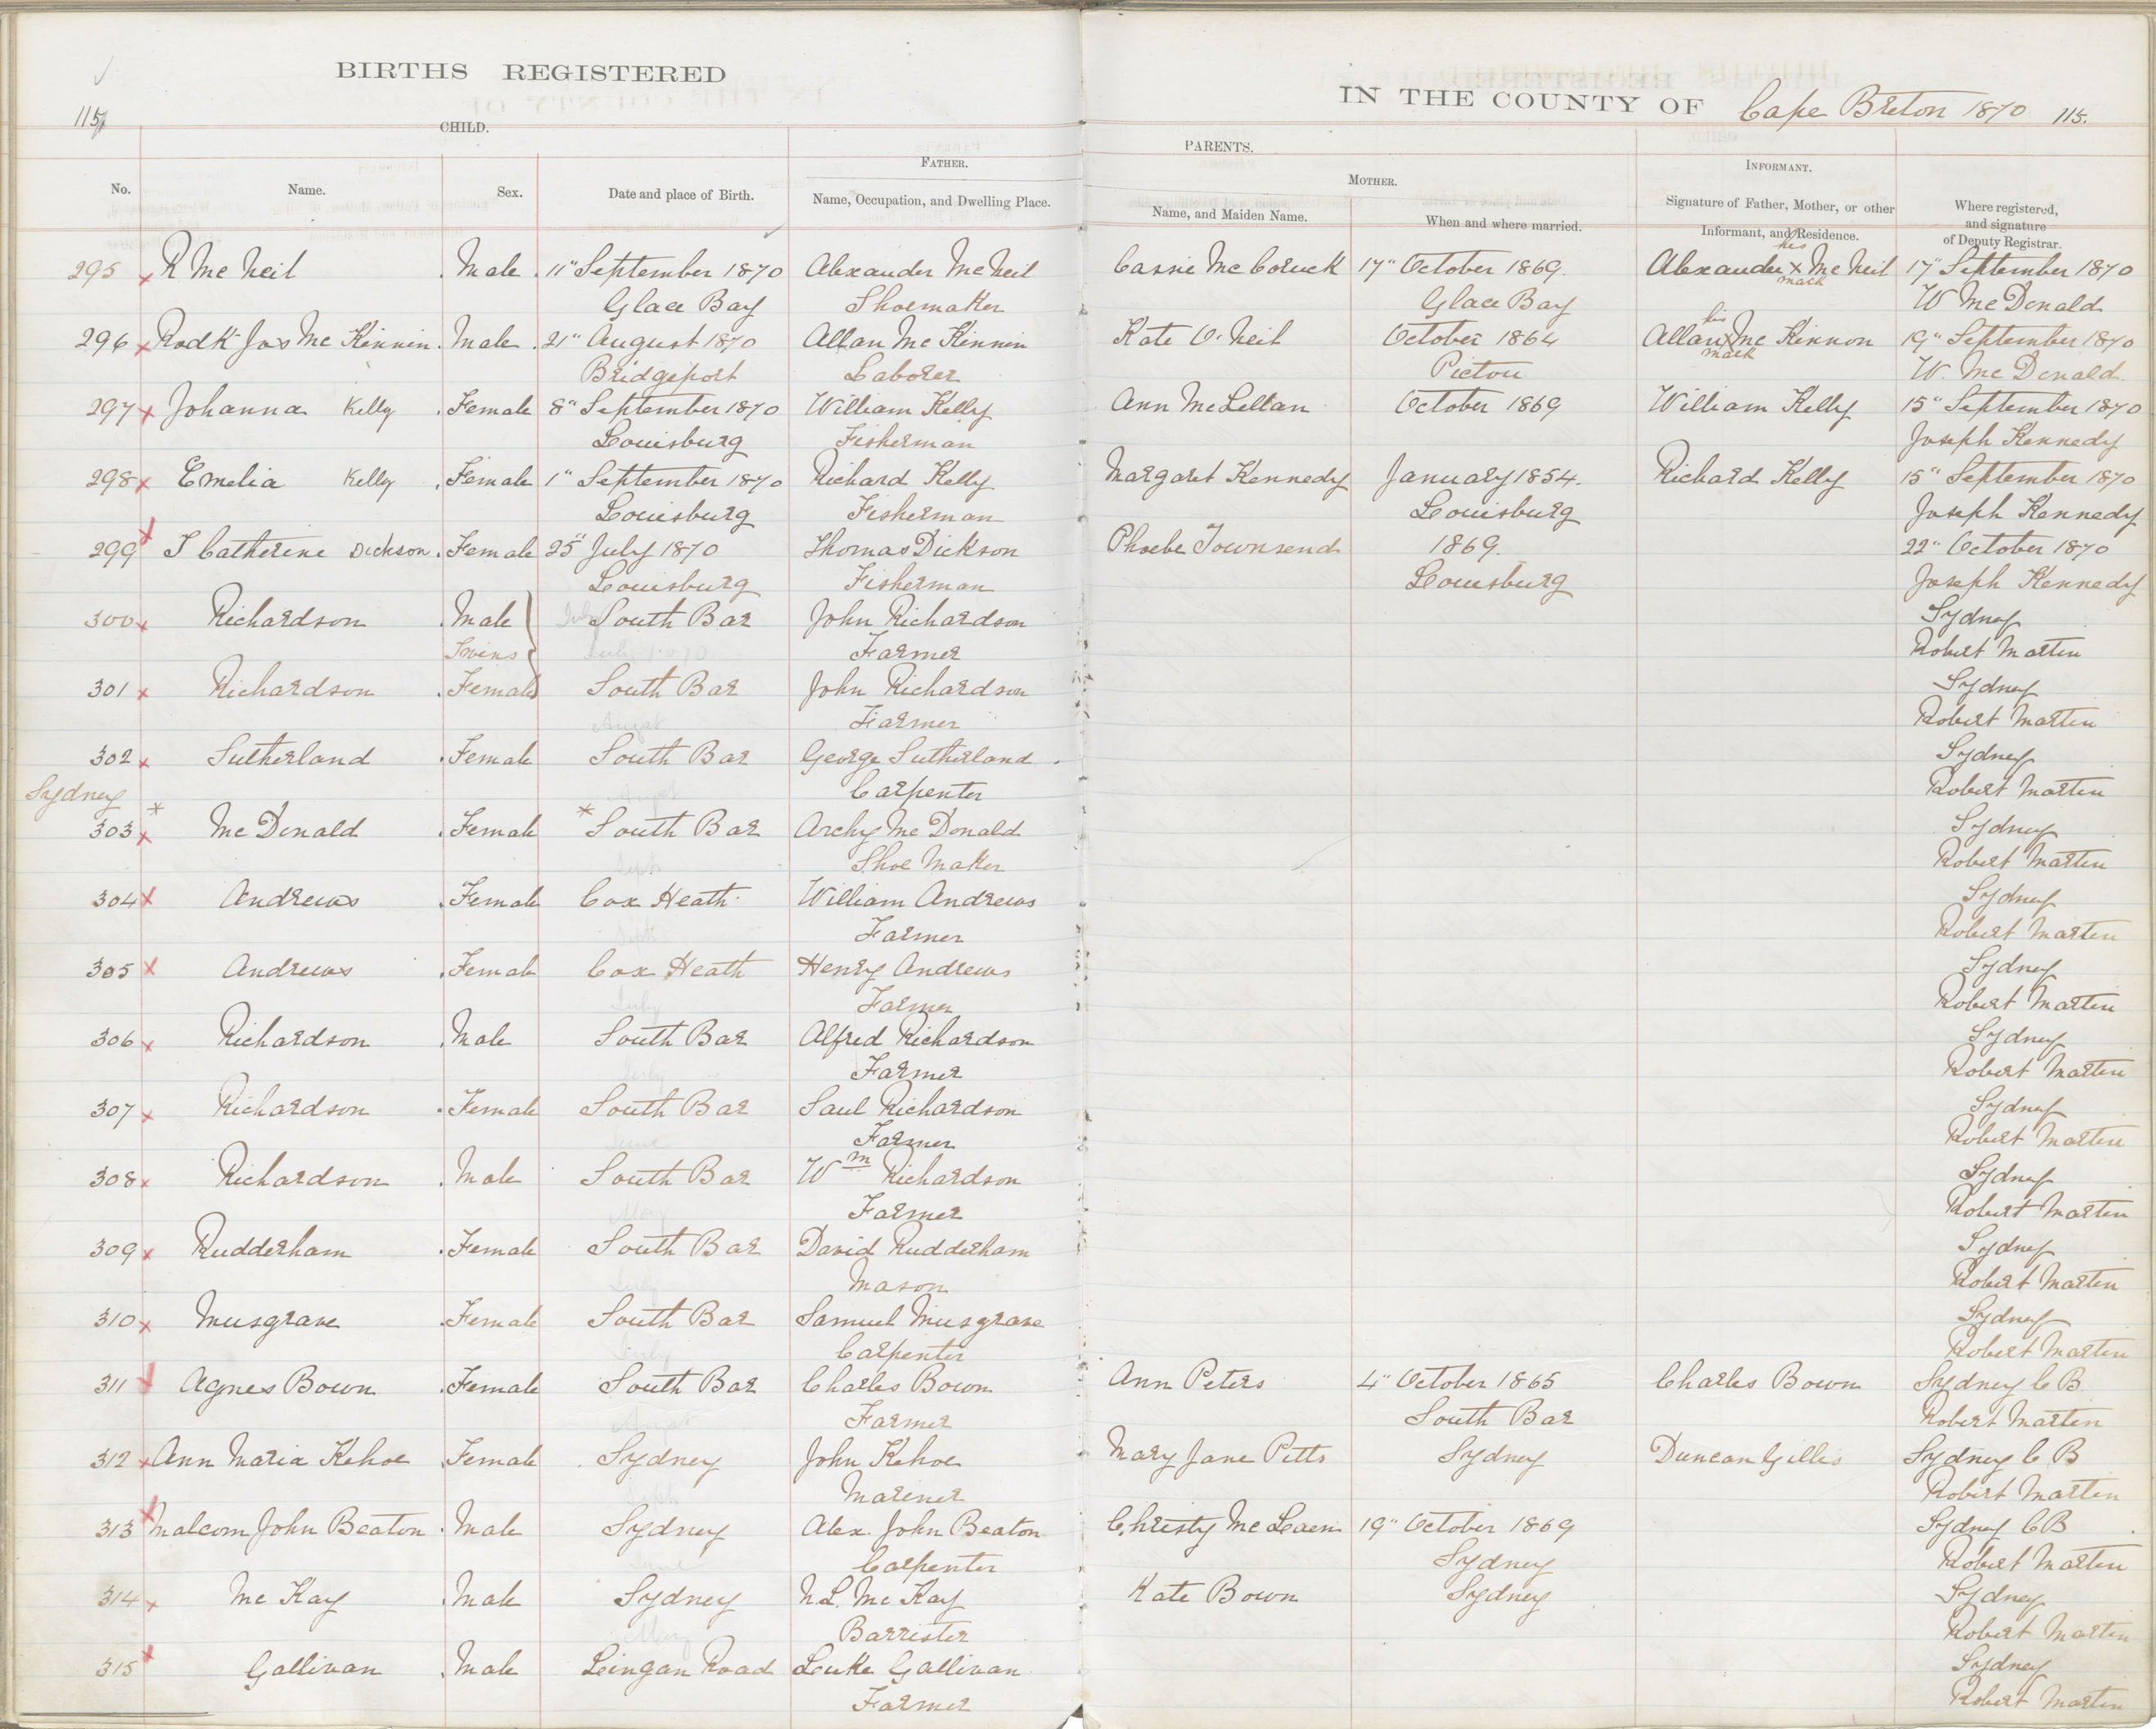 BIRTHS REGISTERED
IN THE COUNTY OF Cape Breton 1870 115.
115
CHILD.
PARENTS.
FATHER.
MOTHER.
INFORMANT.
No. Name. Sex. Date and place of Birth. Name, Occupation, and Dwelling Place. Name, and Maiden Name. When and where married. Signature of Father, Mother, or other Informant, and Residence. Where registered, and signature of Deputy Registrar.
295 x R McNeil Male 11" September 1870 Alexander McNeil Cassie McCoruck 17" October 1869. Alexander his x mark McNeil 17" September 1870
Glace Bay Shoemaker Glace Bay W McDonald
296 x Rodk Jas McKinnin Male 21" August 1870 Allan McKinnin Kate O'Neil October 1864 Allan his x mark McKinnon 19" September 1870
Bridgeport Laborer Pictou W. McDonald
297 x Johanna Kelly Female 8" September 1870 William Kelly Ann McLellan October 1869 William Kelly 15" September 1870
Louisburg Fisherman Joseph Kennedy
298 x Emelia Kelly Female 1" September 1870 Richard Kelly Margaret Kennedy January 1854. Richard Kelly 15" September 1870
Louisburg Fisherman Louisburg Joseph Kennedy
299 J Catherine Dickson Female 25" July 1870 Thomas Dickson Phoebe Townsend 1869. 22" October 1870
Louisburg Fisherman Louisburg Joseph Kennedy
300 x Richardson Male July South Bar John Richardson Sydney
Twins July 1870 Farmer Robert Martin
301 x Richardson Female South Bar John Richardson Sydney
August Farmer Robert Martin
302 x Sutherland Female South Bar George Sutherland Sydney
Sydney August Carpenter Robert Martin
303 x * McDonald Female * South Bar Archy McDonald Sydney
Sept Shoe Maker Robert Martin
304 x Andrews Female Cox Heath William Andrews Sydney
Sept Farmer Robert Martin
305 x Andrews Female Cox Heath Henry Andrews Sydney
July Farmer Robert Martin
306 x Richardson Male South Bar Alfred Richardson Sydney
July Farmer Robert Martin
307 x Richardson Female South Bar Saul Richardson Sydney
June Farmer Robert Martin
308 x Richardson Male South Bar Wm Richardson Sydney
May Farmer Robert Martin
309 x Rudderham Female South Bar David Rudderham Sydney
July Mason Robert Martin
310 x Musgrave Female South Bar Samuel Musgrave Sydney
July Carpenter Robert Martin
311 Agnes Bown Female South Bar Charles Bown Ann Peters 4" October 1865 Charles Bown Sydney C B
August Farmer South Bar Robert Martin
312 x Ann Maria Kehoe Female Sydney John Kehoe Mary Jane Pitts Sydney Duncan Gillis Sydney C B
Mariner Robert Martin
313 x Malcom John Beaton Male Sydney Alex. John Beaton Christy McLaen 19" October 1869 Sydney C B
June Carpenter Sydney Robert Martin
314 x McKay Male Sydney N. L. McKay Kate Bown Sydney Sydney
May Barrister Robert Martin
315 x Gallivan Male Lingan Road Luke Gallivan Sydney
Farmer Robert Martin